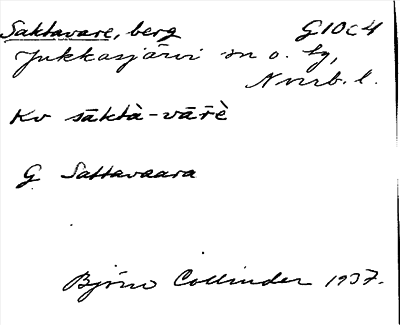 Saktavare, berg G10c4
Jukkasjärvi sn o. tg,
Nvrb. l.
Kv sāktà-vār̄è
G Sattavaara
Björn Collinder 1937.